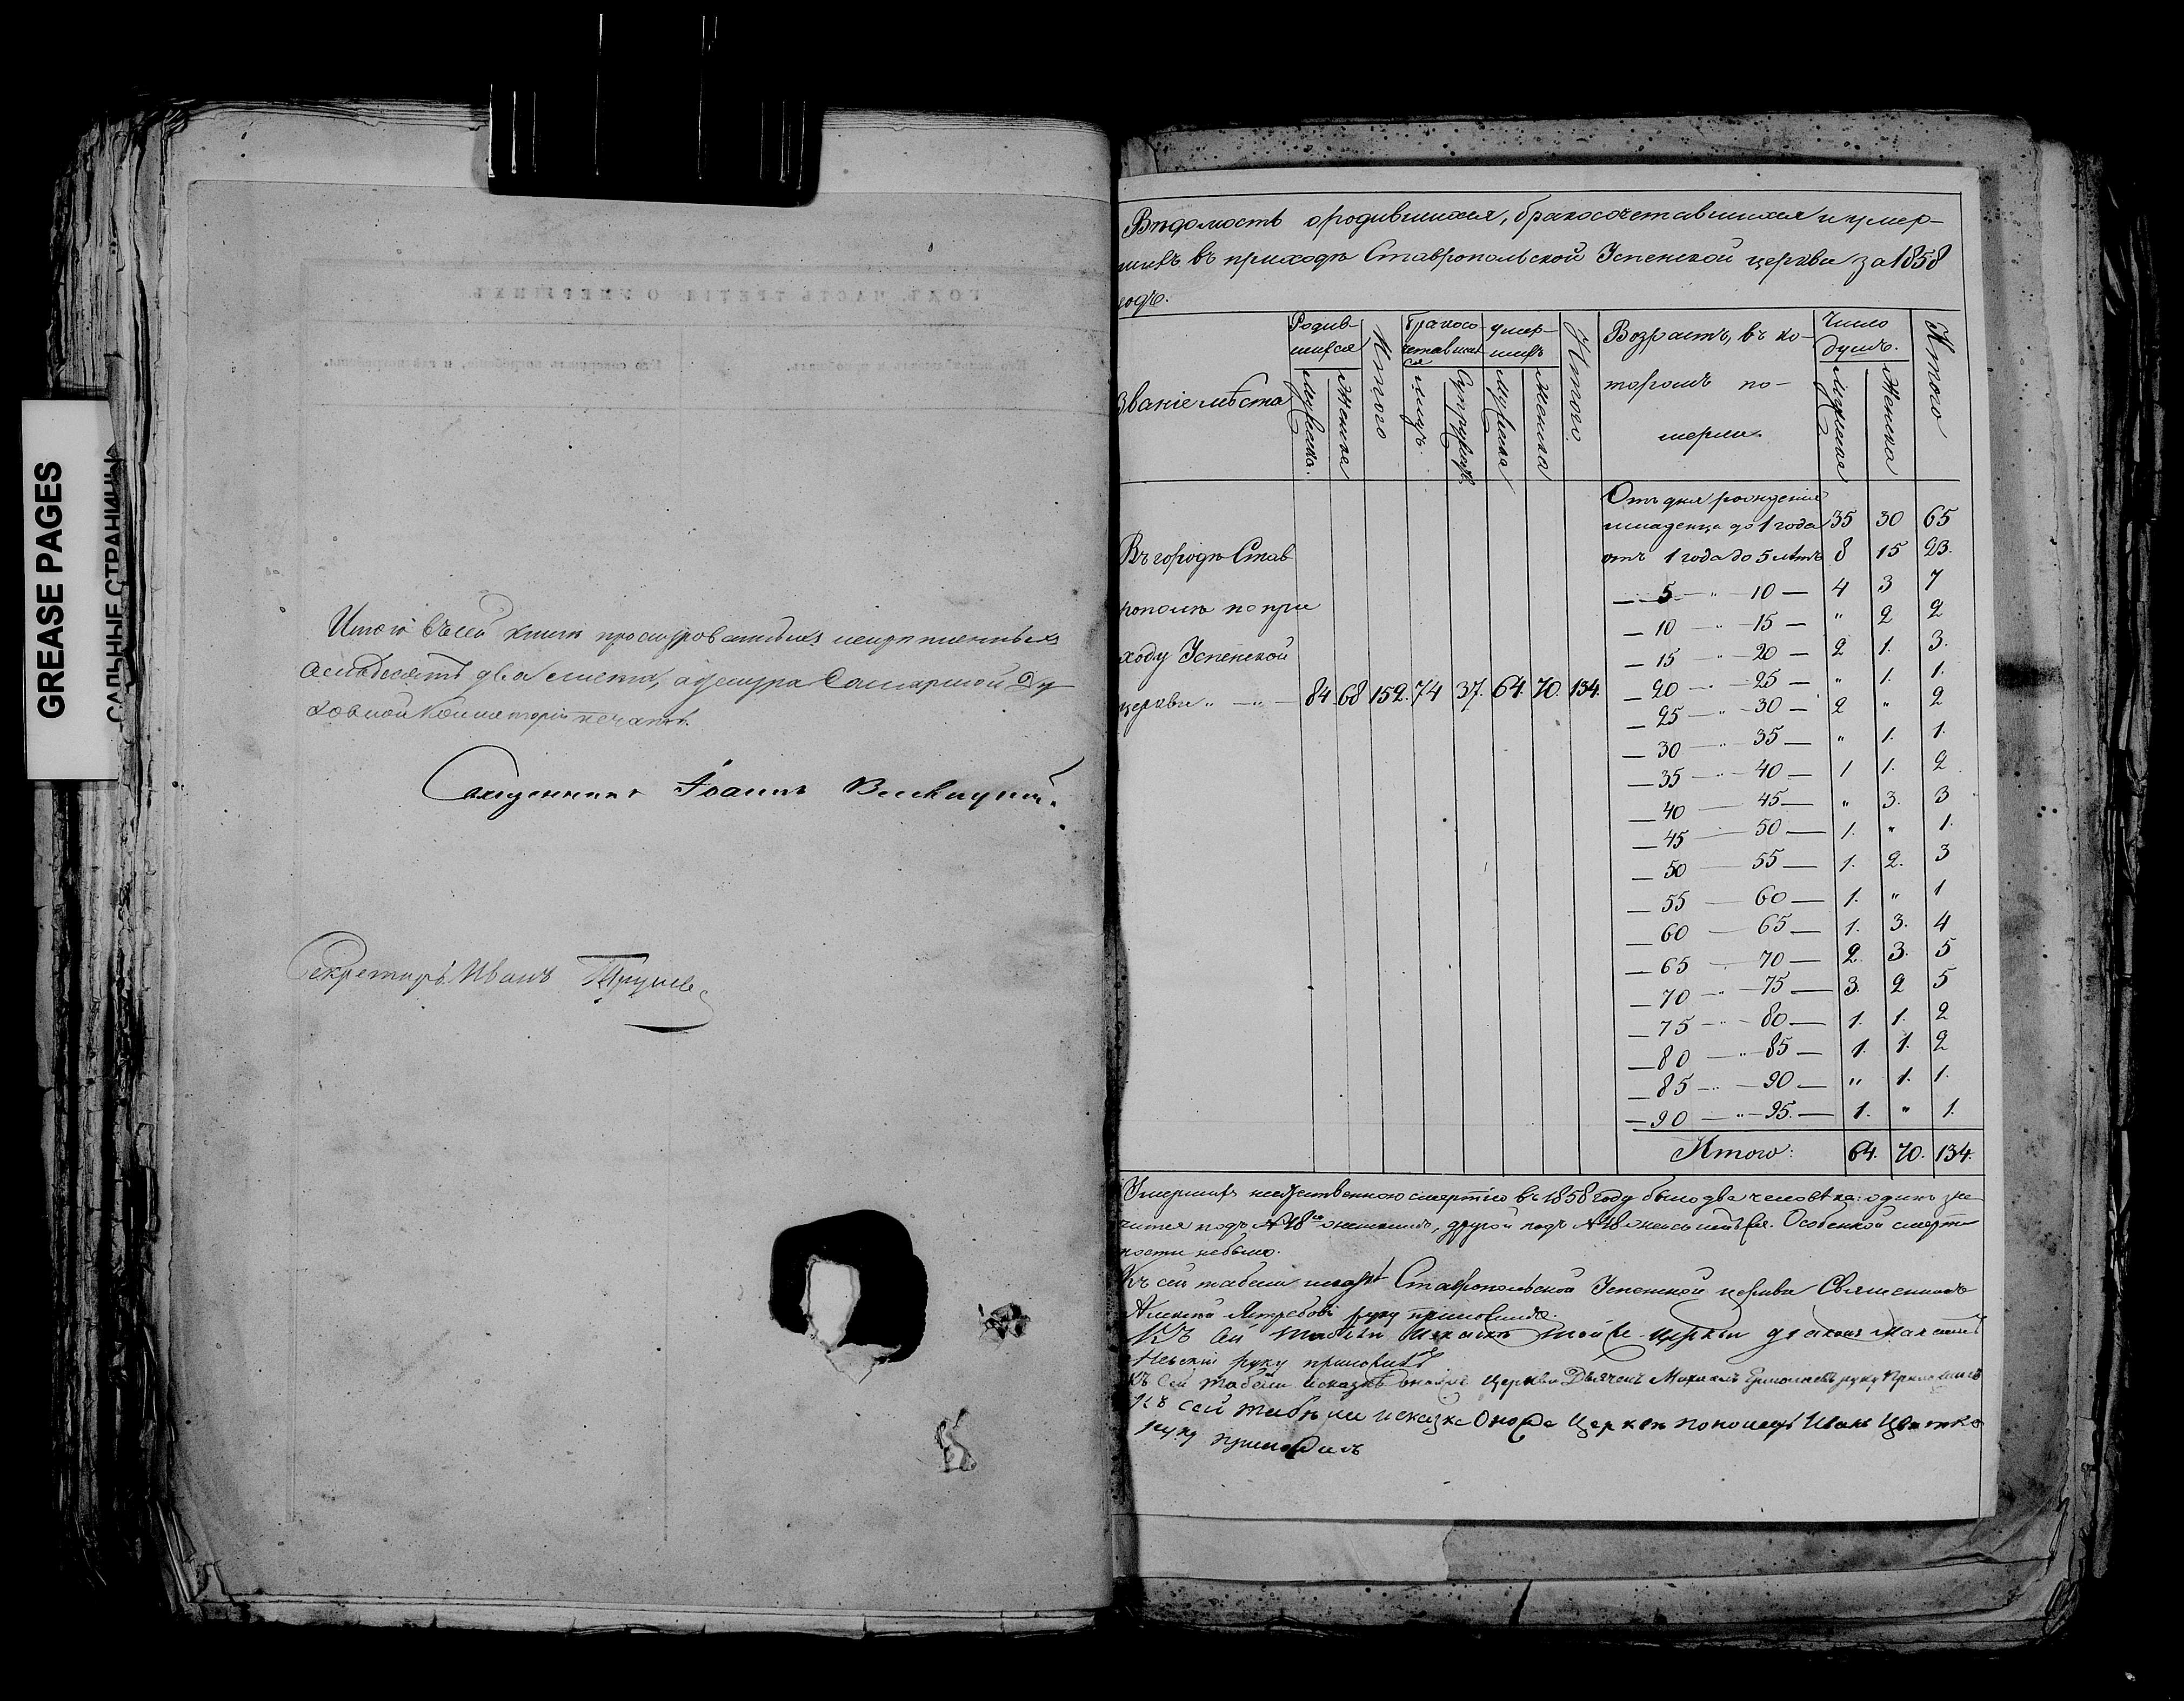 GREASE PAGES
САЛЬНЫЕ СТРАНИЦЫ
ГОДЪ, ЧАСТЬ ТРЕТІЯ, О УМЕРШИХЪ.
Кто совершалъ погребеніе, и гдѣ погребены.
Итого въ сей книгѣ прошнурованныхъ
два листа, а у шнура Самарской Ду-
ховной Консисторіи печать.
Священникъ Іоаннъ
Секретарь Иванъ
Вѣдомость о родившихся, бракосочетавшихся и умер-
шихъ въ приходѣ Ставропольской Успенской церкви за 1858
годъ.
Званіе мѣста
Родив-
шихся
Мужеска.
Женска
Итого
Бракосо-
четавших-
ся
Лицъ.
Супружествъ
умер-
шихъ
Мужеска
Женска
Итого.
Возрастъ, въ ко-
торомъ по-
мерли.
Число
душъ.
Мужеска
Женска
Итого
Въ городѣ Став
рополѣ по при
ходу Успенской
церкви „ — „ — 84. 68 152. 74 37. 64. 70. 134.
Отъ дня рожденія
младенца до 1 года 35 30 65
отъ 1 года до 5 лѣтъ 8 15 23.
— 5 — „ 10 — 4 3 7
— 10 — „ 15 — „ 2 2
— 15 — „ 20 — 2 1. 3.
— 20 — „ 25 — „ 1. 1.
— 25 — „ 30 — 2 „ 2
— 30 — „ 35 — „ 1. 1.
— 35 — „ 40 — 1 1. 2.
— 40 — 45 — „ 3. 3
— 45 — 50 — 1. „ 1.
— 50 — 55 — 1. 2. 3
— 55 — 60 — 1. „ 1
— 60 — 65 — 1. 3. 4
— 65 — 70 — 2. 3. 5
— 70 — „ — 75 — 3. 2 5
— 75 — „ — 80 — 1. 1. 2
— 80 — „ — 85 — 1. 1. 2
— 85 — „ — 90 — „ 1. 1.
— 90 — „ — 95. — 1. „ 1.
Итого: 64. 70. 134.
Умершихъ неестественною смертію въ 1858 году было два человѣка: одинъ зна-
чится подъ другой подъ Особенной смерт-
ности небыло.
Къ сей табели Ставропольской Успенской церкви Священникъ
Алексѣй Ястребовъ руку приложилъ.
Къ сей табели той же церкви діаконъ
Невскій руку приложилъ
Къ сей табели церкви Дьячекъ Михаилъ руку приложилъ
Къ сей церкви пономарь Иванъ
руку приложилъ